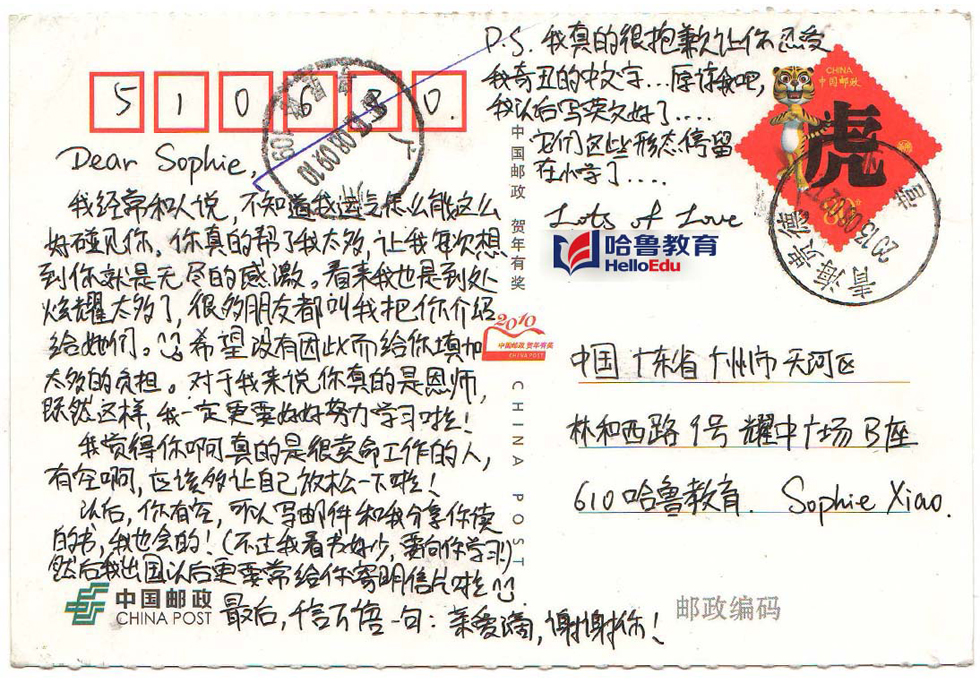 510620.
Dear Sophie,
我经常和人说，不知道我运气怎么能这么
好碰见你。你真的帮了我太多，让我每次想
到你就是无尽的感激。看来我也是到处
炫耀太多了，很多朋友都叫我把你介绍
给她们。希望没有因此而给你填加
太多的负担。对于我来说你真的是恩师，
既然这样，我一定更要好好努力学习啦！
我觉得你啊真的是很卖命工作的人，
有空啊，应该多让自己放松一下啦！
以后，你有空，可以写邮件和我分享你读
的书，我也会的！(不过我看书好少，要向你学习)
然后我出国以后更要常给你寄明信片啦
最后，千言万语一句：亲爱滴，谢谢你！
P.S. 我真的很抱歉让你忍受
我奇丑的中文字...原谅我吧，
我以后写英文好了....
它们这些形态停留
在小学了....
Lots of Love
哈鲁教育
HelloEdu
CHINA
中国邮政
虎
2013.03.02
青海
2013.03.09.10
广
中国邮政 贺年有奖
CHINA POST
2010
中国邮政 贺年有奖
CHINA POST
中国 广东省 广州市 天河区
林和西路 1号 耀中广场 B座
610 哈鲁教育. Sophie Xiao.
中国邮政
CHINA POST
邮政编码